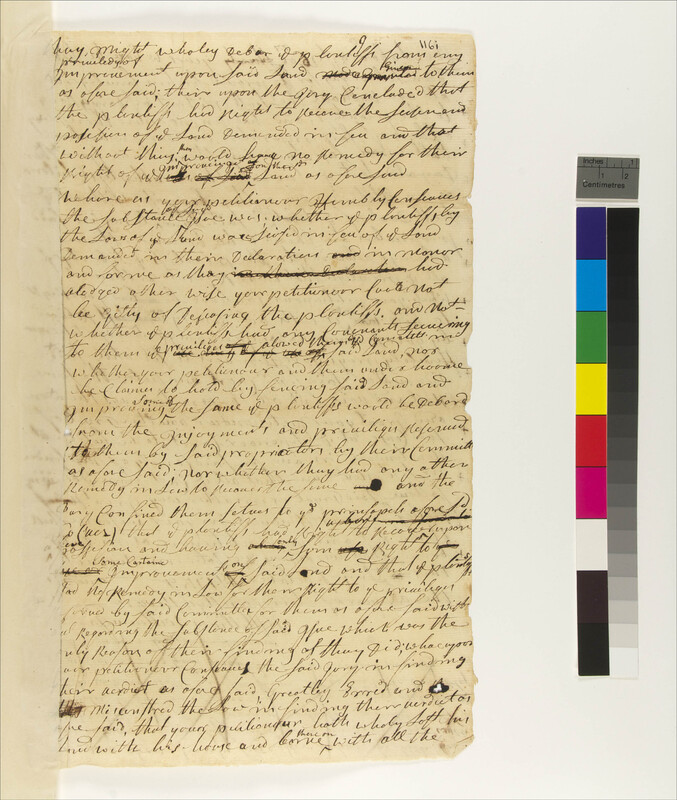 1161
may might wholey Debar ye plentiffs from any
priviledg of
Improvement upon said Land to them
as afore said; their upon the Jury Concluded that
the plentiffs had Right to Recover the seisen and
possesion of ye Land Demanded in fee and that
without this they would have no Remedy for their
Right of Land as afore said
whare as your petitionour Humbly Conseaues
the substance Isue was whether ye plentiffs by
the Law of ye Land ware seised in feu of ye Land
Demanded in their Declaration and in manor
and forme as thay had
aledged other wise your petitionour Could not
be gilty of Disseising the plentiffs. and not
whether ye plentiffs had any Covenants securing
to them ye priviledges alowed them said Land, nor
whether your petitionour and them under hoome
he Claimes to hold by fencing said Land and
improving some of the same ye plentiffs would be Debared
from the Injoyments and priviliges Reserved
to them by said propriators by their Committe
as afore said: nor whether thay had any other
Remedy in Law to Recover the same and the
Jury Confined them selves to ye prinsapels afore sd
that ye plentiffs had Right to Recover upon
possesian and haveing only Right to
some Cartaine
Improvements on said Land and that ye plentiffs
had no Remedy in Law for their Right to ye priviliges
by said Committe for them as afore said with
Regarding the substance of said Isue which was the
only Reason of their finding as thay Did; whareupon
your petitionour Conseaues the said Jury in finding
their verdict as afore said Greatley Erred and
misconstred the Law in finding there verdict as
afore said, that your petitionour hath wholy Lost his
Land with his house and barne thare on with all the
Inches 1
1 2
Centimetres